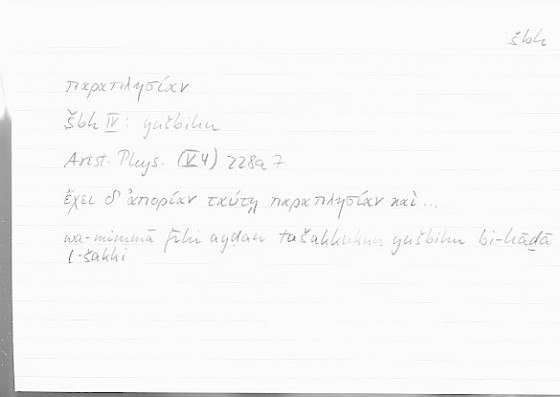 šbh
παραπλησίαν
šbh IV: yušbihu
Arist. Phys. (V 4) 228a7
ἔχει δ' ἀπορίαν ταύτῃ παραπλησίαν καὶ...
wa-mimmā fīhi ayḍan tašakkukun yušbihu bi-hāḏā
l-šakki